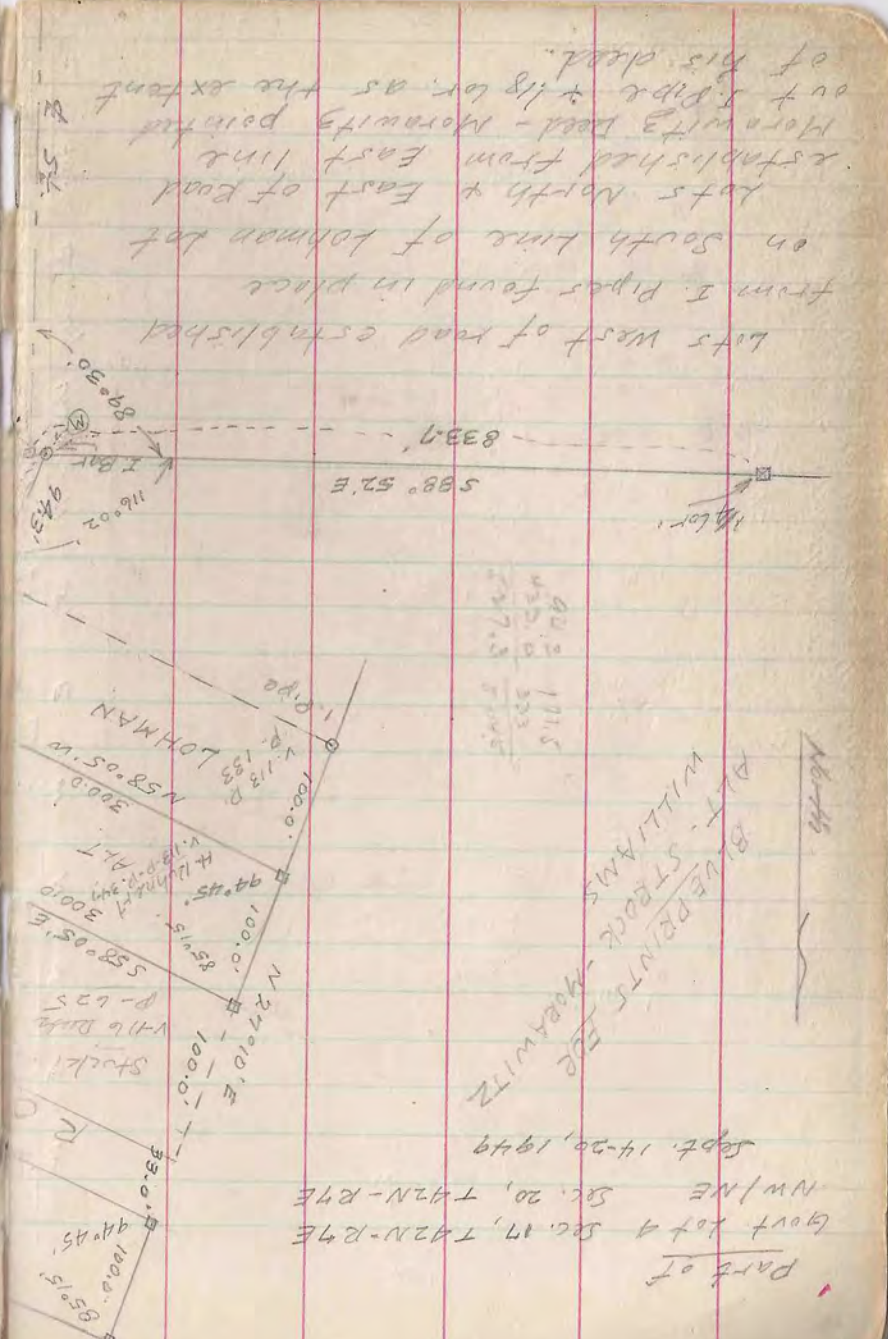 Part of
Govt Lot 4 Sec. 17, T42N-R7E
NW/NE Sec. 20, T42N-R7E
Sept. 14-20, 1949
BLUEPRINTS FOR
ALT. STROCK-MORAWITZ
WILLIAMS
North
85°15'
100.0'
94°45'
33.0'
R
Stuckl
V-116 Deeds
P-625
100.0'
N 27°10' E
S58°05'E
300.0
85°15'
100.0'
94°45'
V.113-P-347
ALT.
300.0'
N58°05'W
LOHMAN
V.113 D.
P. 183
100.0'
I. Pipe
171.5
333
94.3'
116°02'
I Bar
89°30'
S88°52'E
833.7'
1/4 Cor.
Lots West of road established
from I. Pipes found in place
on South Line of Lohman Lot
Lots North & East of Road
established from East line
Morawitz Deed - Morawitz pointed
out I. Pipe & 1/8 Cor. as the extent
of his deed.